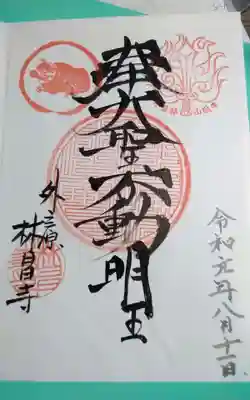 令和元年八月十一日
奉大聖不動明王
外之原
林昌寺